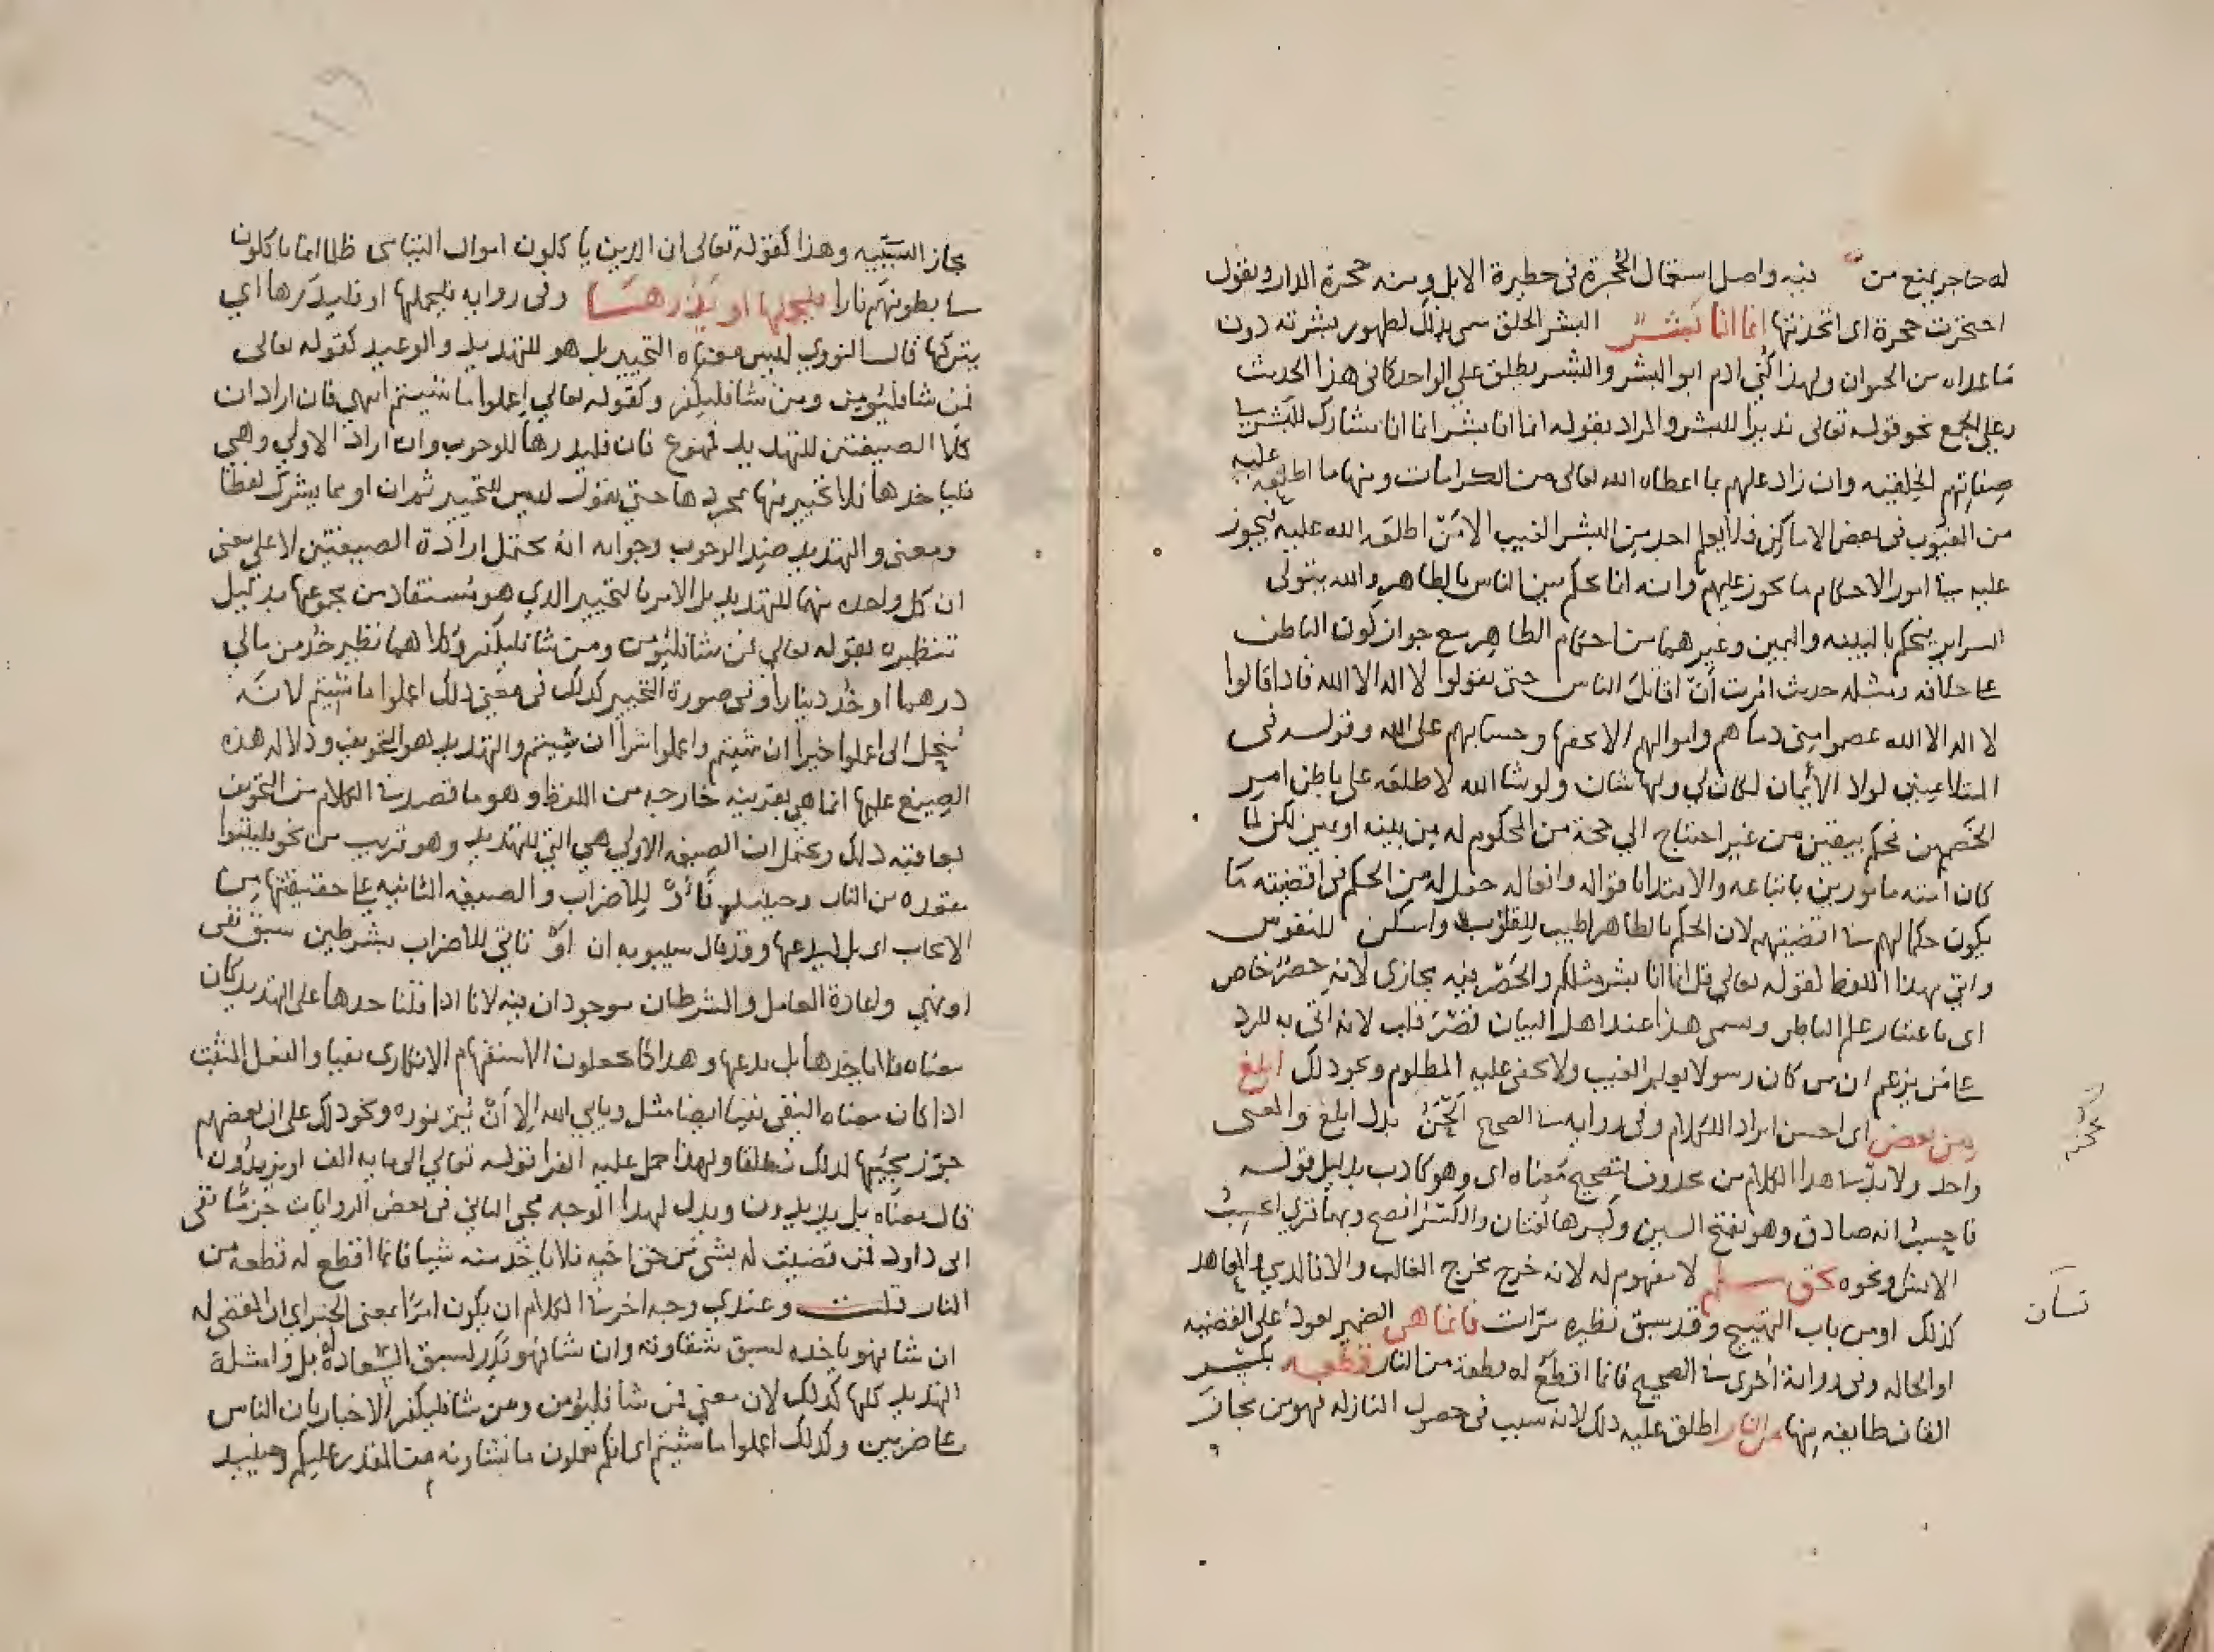 له حاجر يمنع من بنيه واصل استعمال الحجرة في حظيرة الابل ومنه حجرة الدار وتقول
احتجرت حجرة اى اتخذتها انما انا بشر البشر الخلق سمى بذلك لظهور بشرته دون
ما عداه من الحيوان ولهذا كني ادم ابو البشر والبشر يطلق على الواحد كما في هذا الحديث
وعلى الجمع نحو قوله تعالى نذيرا للبشر والمراد بقوله انما انا بشر انما انا مشارك للبشر في
صفاتهم الخلقيه وان زاد عليهم بما اعطاه الله تعالى من الكرامات ومنها ما اطلعه عليه
من الغيوب في بعض الاماكن فلا يعلم احد من البشر الغيب الا من اطلعه الله عليه فيجوز
عليه في امور الاحكام ما يجوز عليهم وانه انما يحكم بين الناس بالظاهر والله يتولى
السراير فيحكم بالبينه واليمين وغيرهما من احكام الظاهر مع جواز كون الباطن
على خلافه ومثله حديث امرت أن اقاتل الناس حتى يقولوا لا اله الا الله فاذا قالوا
لا اله الا الله عصموا مني دماهم واموالهم الا بحقها وحسابهم على الله وقوله في
المتلاعنين لولا الأيمان لكان لي ولها شان ولو شا الله لاطلعه على باطن امر
الخصمين فحكم بيقين من غير احتياج الي حجة من المحكوم له من بينه او يمين لكن لما
كان امته مامورين باتباعه والاقتدا باقواله وافعاله جعل له من الحكم في اقضيته ما
يكون حكما لهم في اقضيتهم لان الحكم بالظاهر اطيب للقلوب واسكن للنفوس
واتى بهذا اللفظ لقوله تعالي قل انما انا بشر مثلكم والحصر فيه مجازى لانه حصر خاص
اى باعتبار علم الباطن ويسمى هذا عند اهل البيان قصر قلب لانه اتى به للرد
على من يزعم ان من كان رسولا يعلم الغيب ولا يخفى عليه المظلوم ونحو ذلك ابلغ
من بعض اى احسن ايراد الكلام وفي رواية في الصحيح الحن بدل ابلغ والمعنى
واحد ولا بد في هذا الكلام من محذوف لتصحيح معناه اى وهو كاذب بدليل قوله
فاحسب انه صادق وهو بفتح السين وكسرها لغتان والكسر افصح وبهما قري ايحسب
الانسان ونحوه بحق مسلم لا مفهوم له لانه خرج مخرج الغالب والا فالذمي والمعاهد
كذلك او من باب التهييج وقد سبق نظيره مرات فانما هي الضمير يعود على القضيه
او الحاله وفى رواية اخرى في الصحيح فانما اقطع له قطعة من النار قطعه بكسر
القاف طايفه منها من النار اطلق عليه ذلك لانه سبب في حصول النار له فهو من مجاز
نسان
مجاز السببيه وهذا كقوله تعالى ان الذين ياكلون اموال اليتامى ظلما انما ياكلون
في بطونهم نارا فليحملها او يذرها وفى روايه فليحملها او فليذرها اي
يتركها قال النووي ليس معناه التخيير بل هو للتهديد والوعيد كقوله تعالى
فمن شا فليؤمن ومن شا فليكفر وكقوله تعالي اعملوا ما شيتم انتهى فان اراد ان
كلا الصيغتين للتهديد فممنوع فان فليذرها للوجوب وان اراد الاولى وهي
فلياخذها فلا تخيير فيها بمجردها حتى يقول ليس للتخيير ثم ان او مما يشرك لفظا
ومعنى والتهديد ضد الوجوب وجوابه انه يحتمل ارادة الصيغتين لا على معنى
ان كل واحده منهما للتهديد بل الامر بالتخيير الذي هو مستفاد من مجموعها بدليل
تنظيره بقوله تعالي فمن شا فليؤمن ومن شا فليكفر وكلاهما نظير خذ من مالي
درهما او خذ دينارا وفى صورة التخيير كذلك في معنى ذلك اعملوا ما شيتم لانه
ينحل الى اعملوا خيرا ان شيتم واعملوا شرا ان شيتم والتهديد هو التخويف ودلالة هذه
الصيغ عليها انما هي بقرينه خارجه من اللفظ وهو ما قصد في الكلام من التخويف
بعاقبة ذلك ويحتمل ان الصيغه الاولي هي التي للتهديد وهو قريب من نحو فليتبوا
مقعده من النار وحينيذ فأو للاضراب والصيغه الثانيه على حقيقتها من
الايجاب اى بل ليدعها وقد قال سيبويه ان او تاتي للاضراب بشرطين سبق نفي
او نهي واعادة العامل والشرطان موجودان فيه لانا اذا قلنا خذها على التهديد كان
معناه فلا ياخذها بل يدعها وهذا كما يجعلون الاستفهام الانكارى نفيا والفعل المثبت
اذا كان معناه النفي نفيا ايضا مثل ويابي الله الا أن يتم نوره ونحو ذلك على ان بعضهم
جوز مجيئها لذلك مطلقا ولهذا حمل عليه الفرا قوله تعالي الى مايه الف او يزيدون
قال معناه بل يزيدون ويدل لهذا الوجه مجي الثاني في بعض الروايات جزما ففى
ابى داود فمن قضيت له بشي من حق اخيه فلا ياخذ منه شيا فانما اقطع له قطعة من
النار قلت وعندي وجه اخر في الكلام ان يكون امرا بمعنى الخبر اي ان المقضى له
ان شا فهو ياخذه لسبق شقاوته وان شا فهو يذر لسبق السعادة له بل وامثلة
التهديد كلها كذلك لان معنى فمن شا فليؤمن ومن شا فليكفر الاخبار بان الناس
على ضربين وكذلك اعملوا ما شيتم اى انكم تعملون ما تشاونه من المقدر عليكم وحينيذ